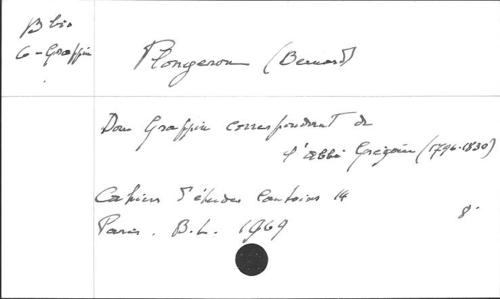 Biblio
G-Grappin
Plongeron (Bernard)
Dom Grappin correspondant de
l'abbé Grégoire (1796-1830)
Cahiers d'études comtoises 14
Paris. B.L. 1969
8°